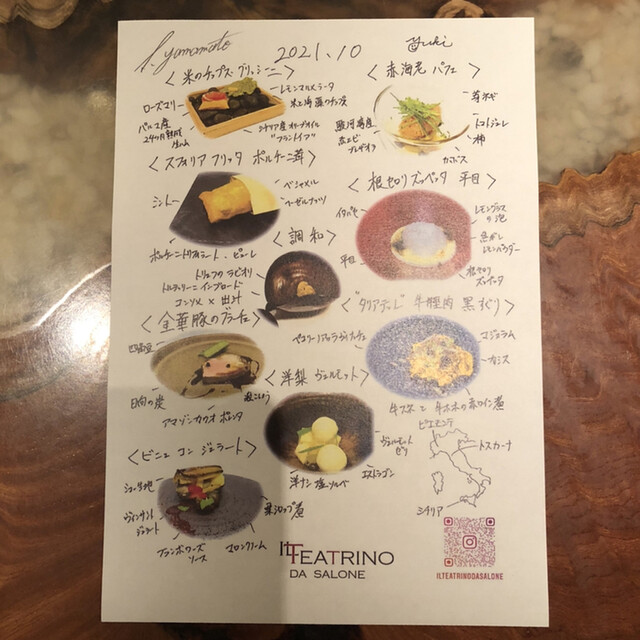 S. yamamoto
2021.10
Yuki
〈米のチップス・グリッシーニ〉
ローズマリー
レモンマルメラータ
パルマ産
24ヶ月熟成
生ハム
シチリア産オリーブオイル
〈赤海老 パフェ〉
トマトジュレ
柿
カボス
〈スフォリア フリッタ ポルチーニ茸〉
ベシャメル
ヘーゼルナッツ
〈根セロリ ズッパッタ 平目〉
レモングラス
の泡
焦がし
レモンパウダー
平目
根セロリ
〈調和〉
トリュフの ラビオリ
トルテリーニ インブロード
コンソメ × 出汁
〈金華豚のブラーチェ〉
四角豆
日向の炭
アマゾンカカオ ポレンタ
〈タリアテッレ 牛頬肉 黒すぐり〉
マジョラム
カシス
牛スネと 牛ホホの赤ワイン煮
〈洋梨 ヴェルモット〉
ヴェルモット
ゼリー
エストラゴン
洋ナシ 塩ソルベ
〈ビニェ コン ジェラート〉
シュー生地
ヴィンサント
ジェラート
フランボワーズ
ソース
マロンクリーム
栗シロップ煮
ピエモンテ
トスカーナ
シチリア
IL TEATRINO
DA SALONE
ILTEATRINODASALONE